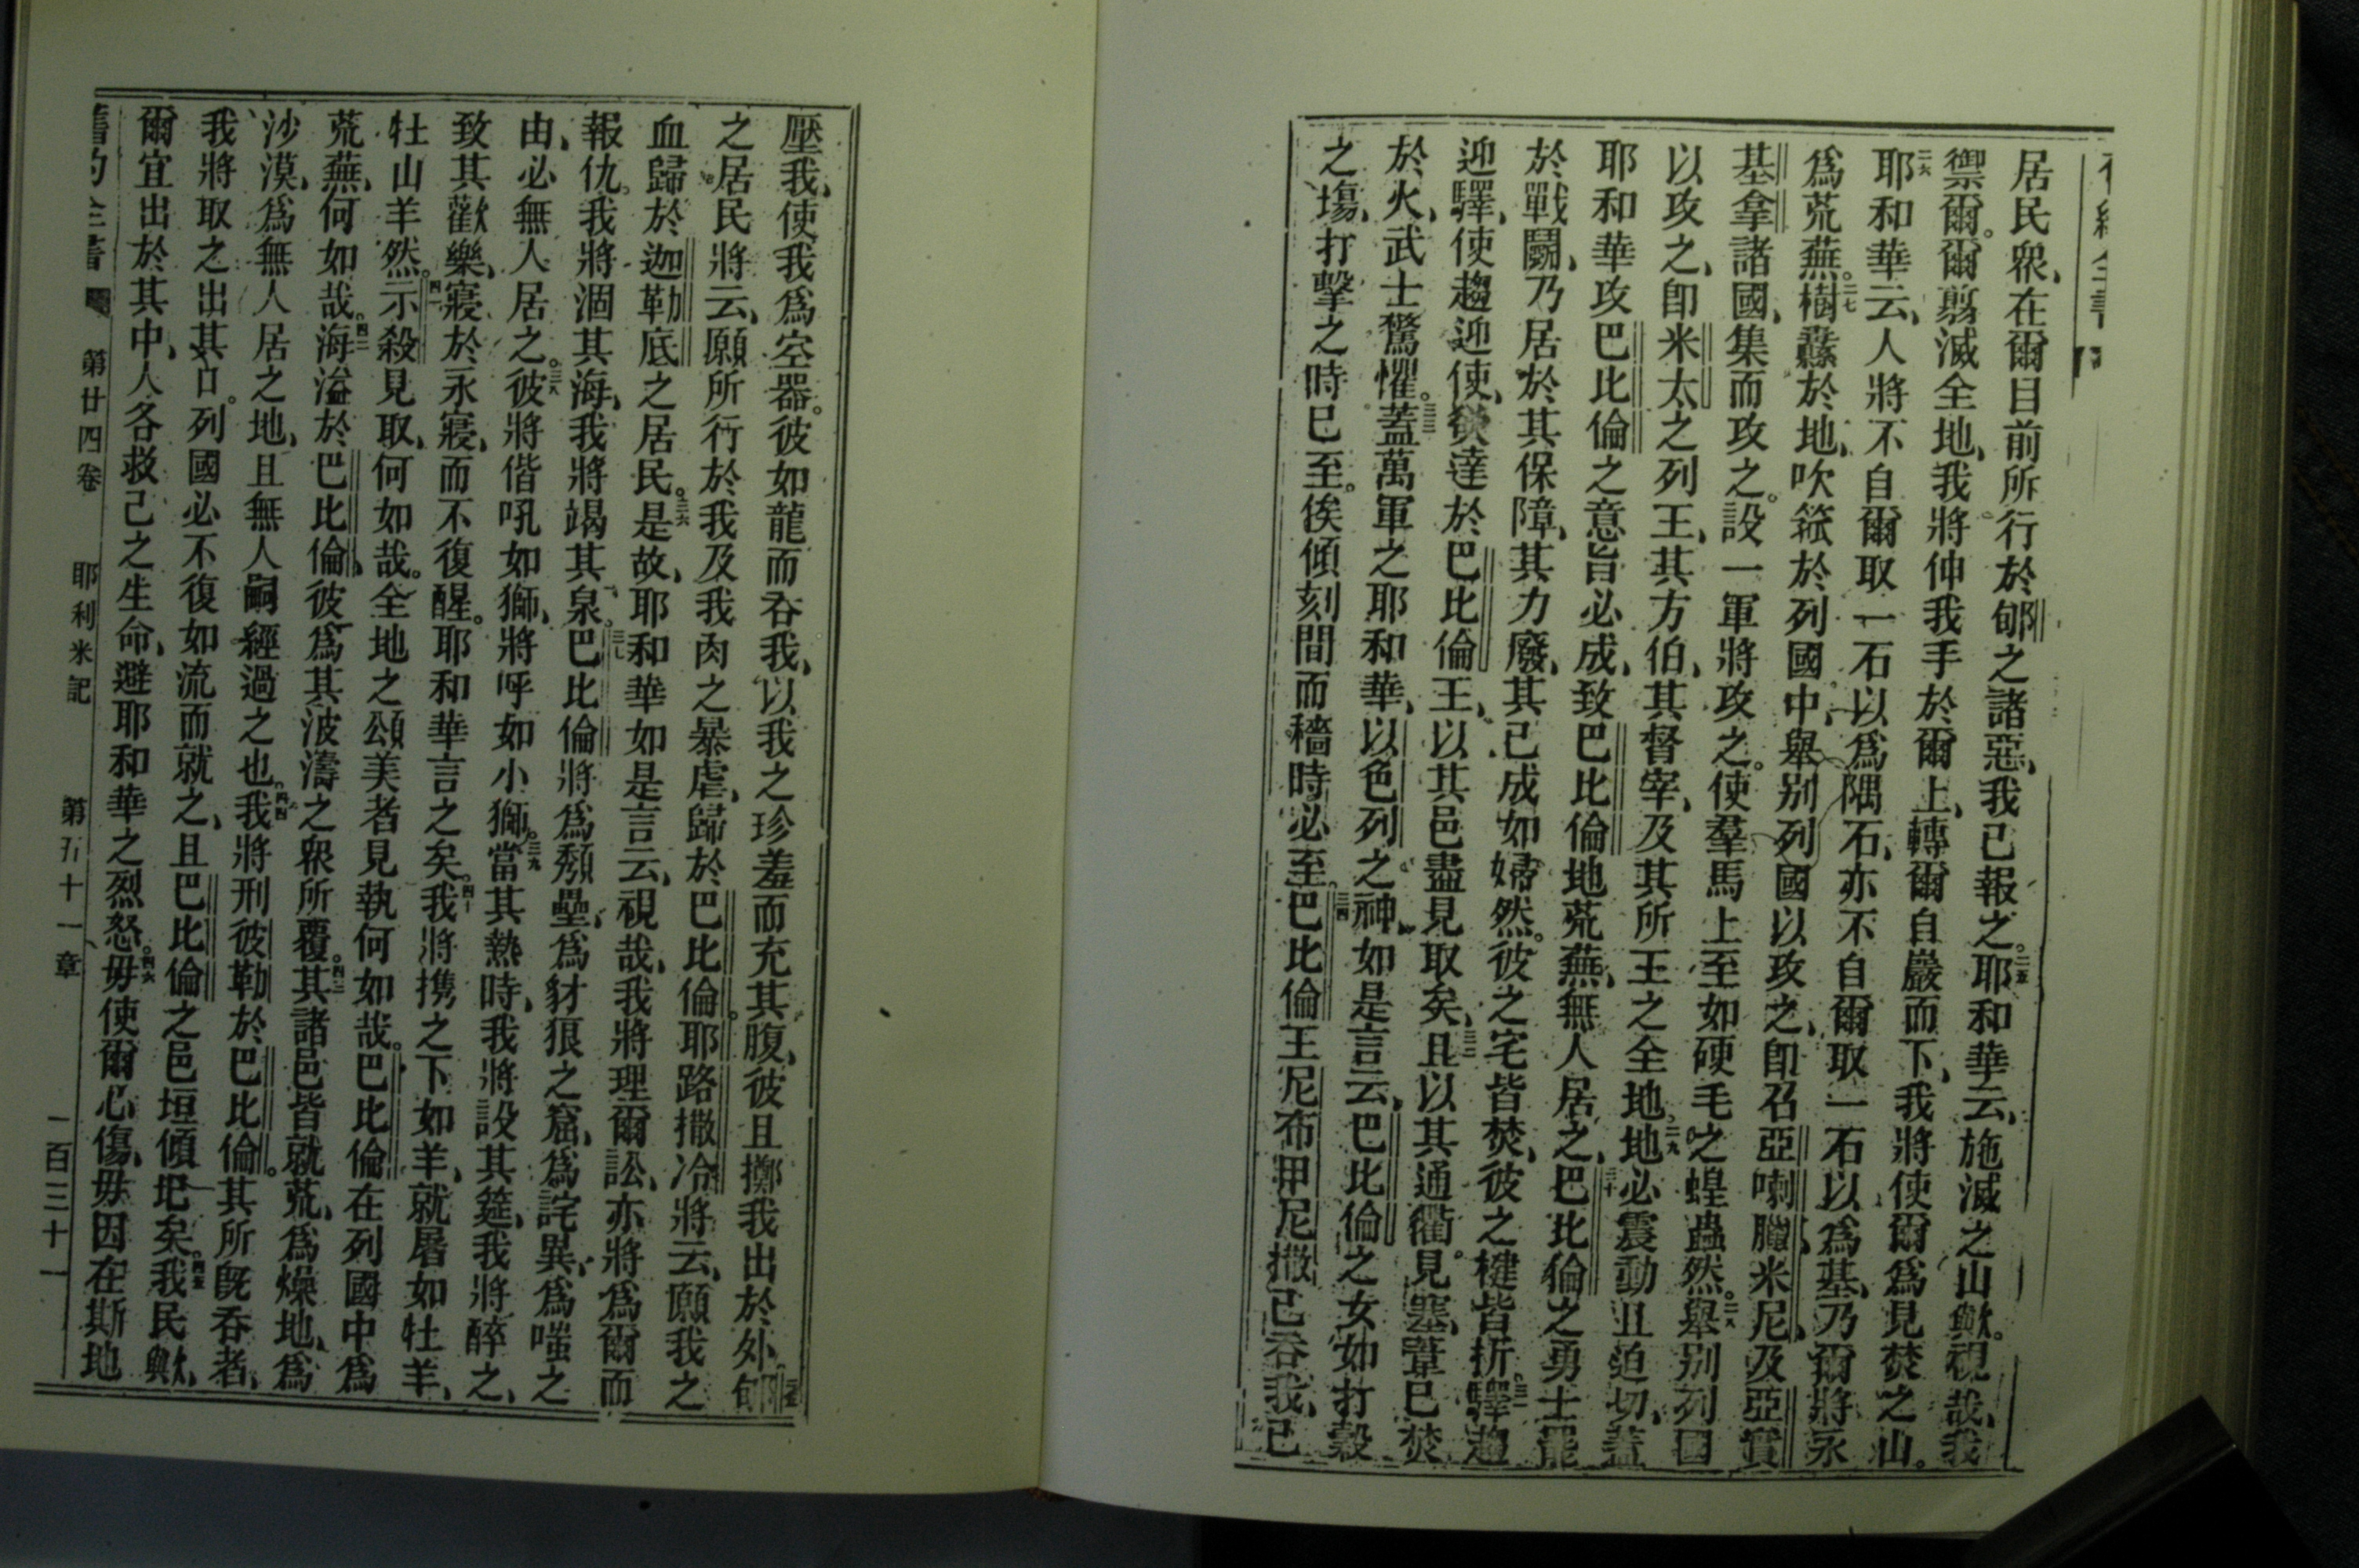 居民眾、在爾目前所行於郇之諸惡、我已報之。二五耶和華云、施滅之山歟。視哉、我
禦爾。爾翦滅全地、我將伸我手於爾上、轉爾自巖而下、我將使爾爲見焚之山。
二六耶和華云、人將不自爾取一石以爲隅石、亦不自爾取一石以爲基、乃爾將永
爲荒蕪。二七樹纛於地、吹箛於列國中、舉别列國以攻之、卽召亞喇臘米尼、及亞實
基拿諸國、集而攻之。設一軍將攻之。使羣馬上至如硬毛之蝗蟲然。二八舉别列國
以攻之、卽米太之列王、其方伯、其督宰、及其所王之全地。二九地必震動且迫切、蓋
耶和華攻巴比倫之意旨必成、致巴比倫地荒蕪、無人居之。三十巴比倫之勇士罷
於戰鬭、乃居於其保障、其力廢、其已成如婦然。彼之宅皆焚、彼之楗皆折。三一驛趨
迎驛、使趨迎使、欲達於巴比倫王、以其邑盡見取矣、三二且以其通衢。見塞、葦已焚
於火、武士驚懼。三三蓋萬軍之耶和華、以色列之神、如是言云、巴比倫之女如打穀
之塲、打擊之時已至。俟傾刻間而穡時必至。三四巴比倫王尼布甲尼撒已吞我、已
壓我、使我爲空器。彼如龍而吞我、以我之珍羞而充其腹、彼且擲我出於外。三五郇
之居民將云、願所行於我及我肉之暴虐、歸於巴比倫。耶路撒冷將云、願我之
血歸於迦勒底之居民。三六是故、耶和華如是言云、視哉、我將理爾訟、亦將爲爾而
報仇。我將涸其海、我將竭其泉。三七巴比倫將爲頽壘、爲豺狼之窟、爲詫異、爲嗤之
由、必無人居之。三八彼將偕吼如獅、將呼如小獅。三九當其熱時、我將設其筵、我將醉之、
致其歡樂、寢於永寢、而不復醒。耶和華言之矣。四十我將攜之下如羊、就屠如牡羊、
牡山羊然。四一示殺見取、何如哉。全地之頌美者見執何如哉。巴比倫在列國中爲
荒蕪、何如哉。四二海溢於巴比倫、彼爲其波濤之眾所覆。四三其諸邑皆就荒、爲燥地、爲
沙漠、爲無人居之地、且無人嗣經過之也。四四我將刑彼勒於巴比倫。其所旣吞者、
我將取之出其口。列國必不復如流而就之、且巴比倫之邑垣傾圯矣。四五我民歟、
爾宜出於其中、人各救己之生命、避耶和華之烈怒。四六毋使爾心傷、毋因在斯地
舊約全書 第廿四卷 耶利米記 第五十一章 一百三十一